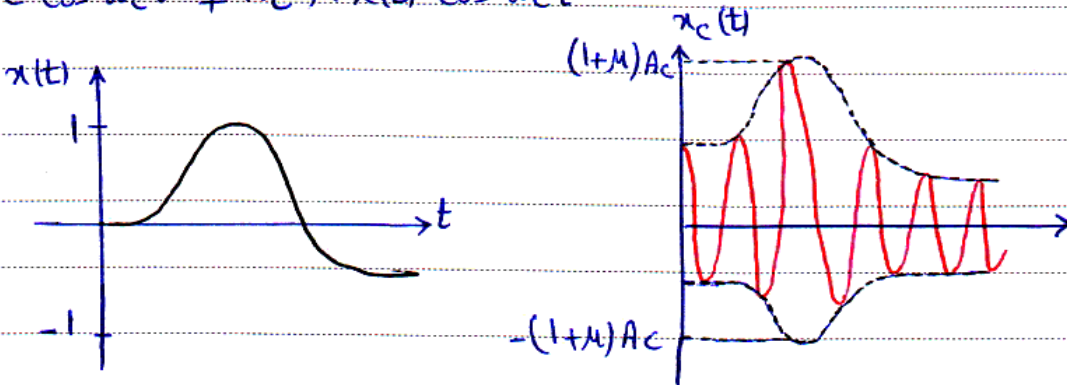 x(t)
1
-1
t
x_c(t)
(1+μ)Ac
-(1+μ)Ac